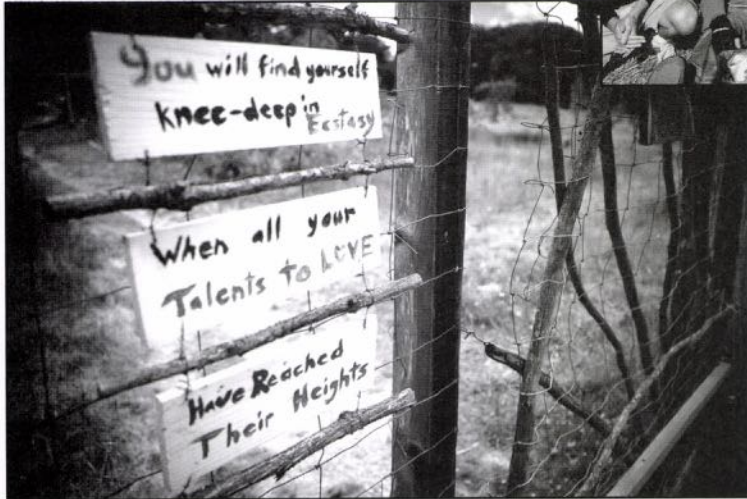 You will find yourself
knee-deep in Ecstasy
When all your
Talents to LOVE
Have Reached
Their Heights